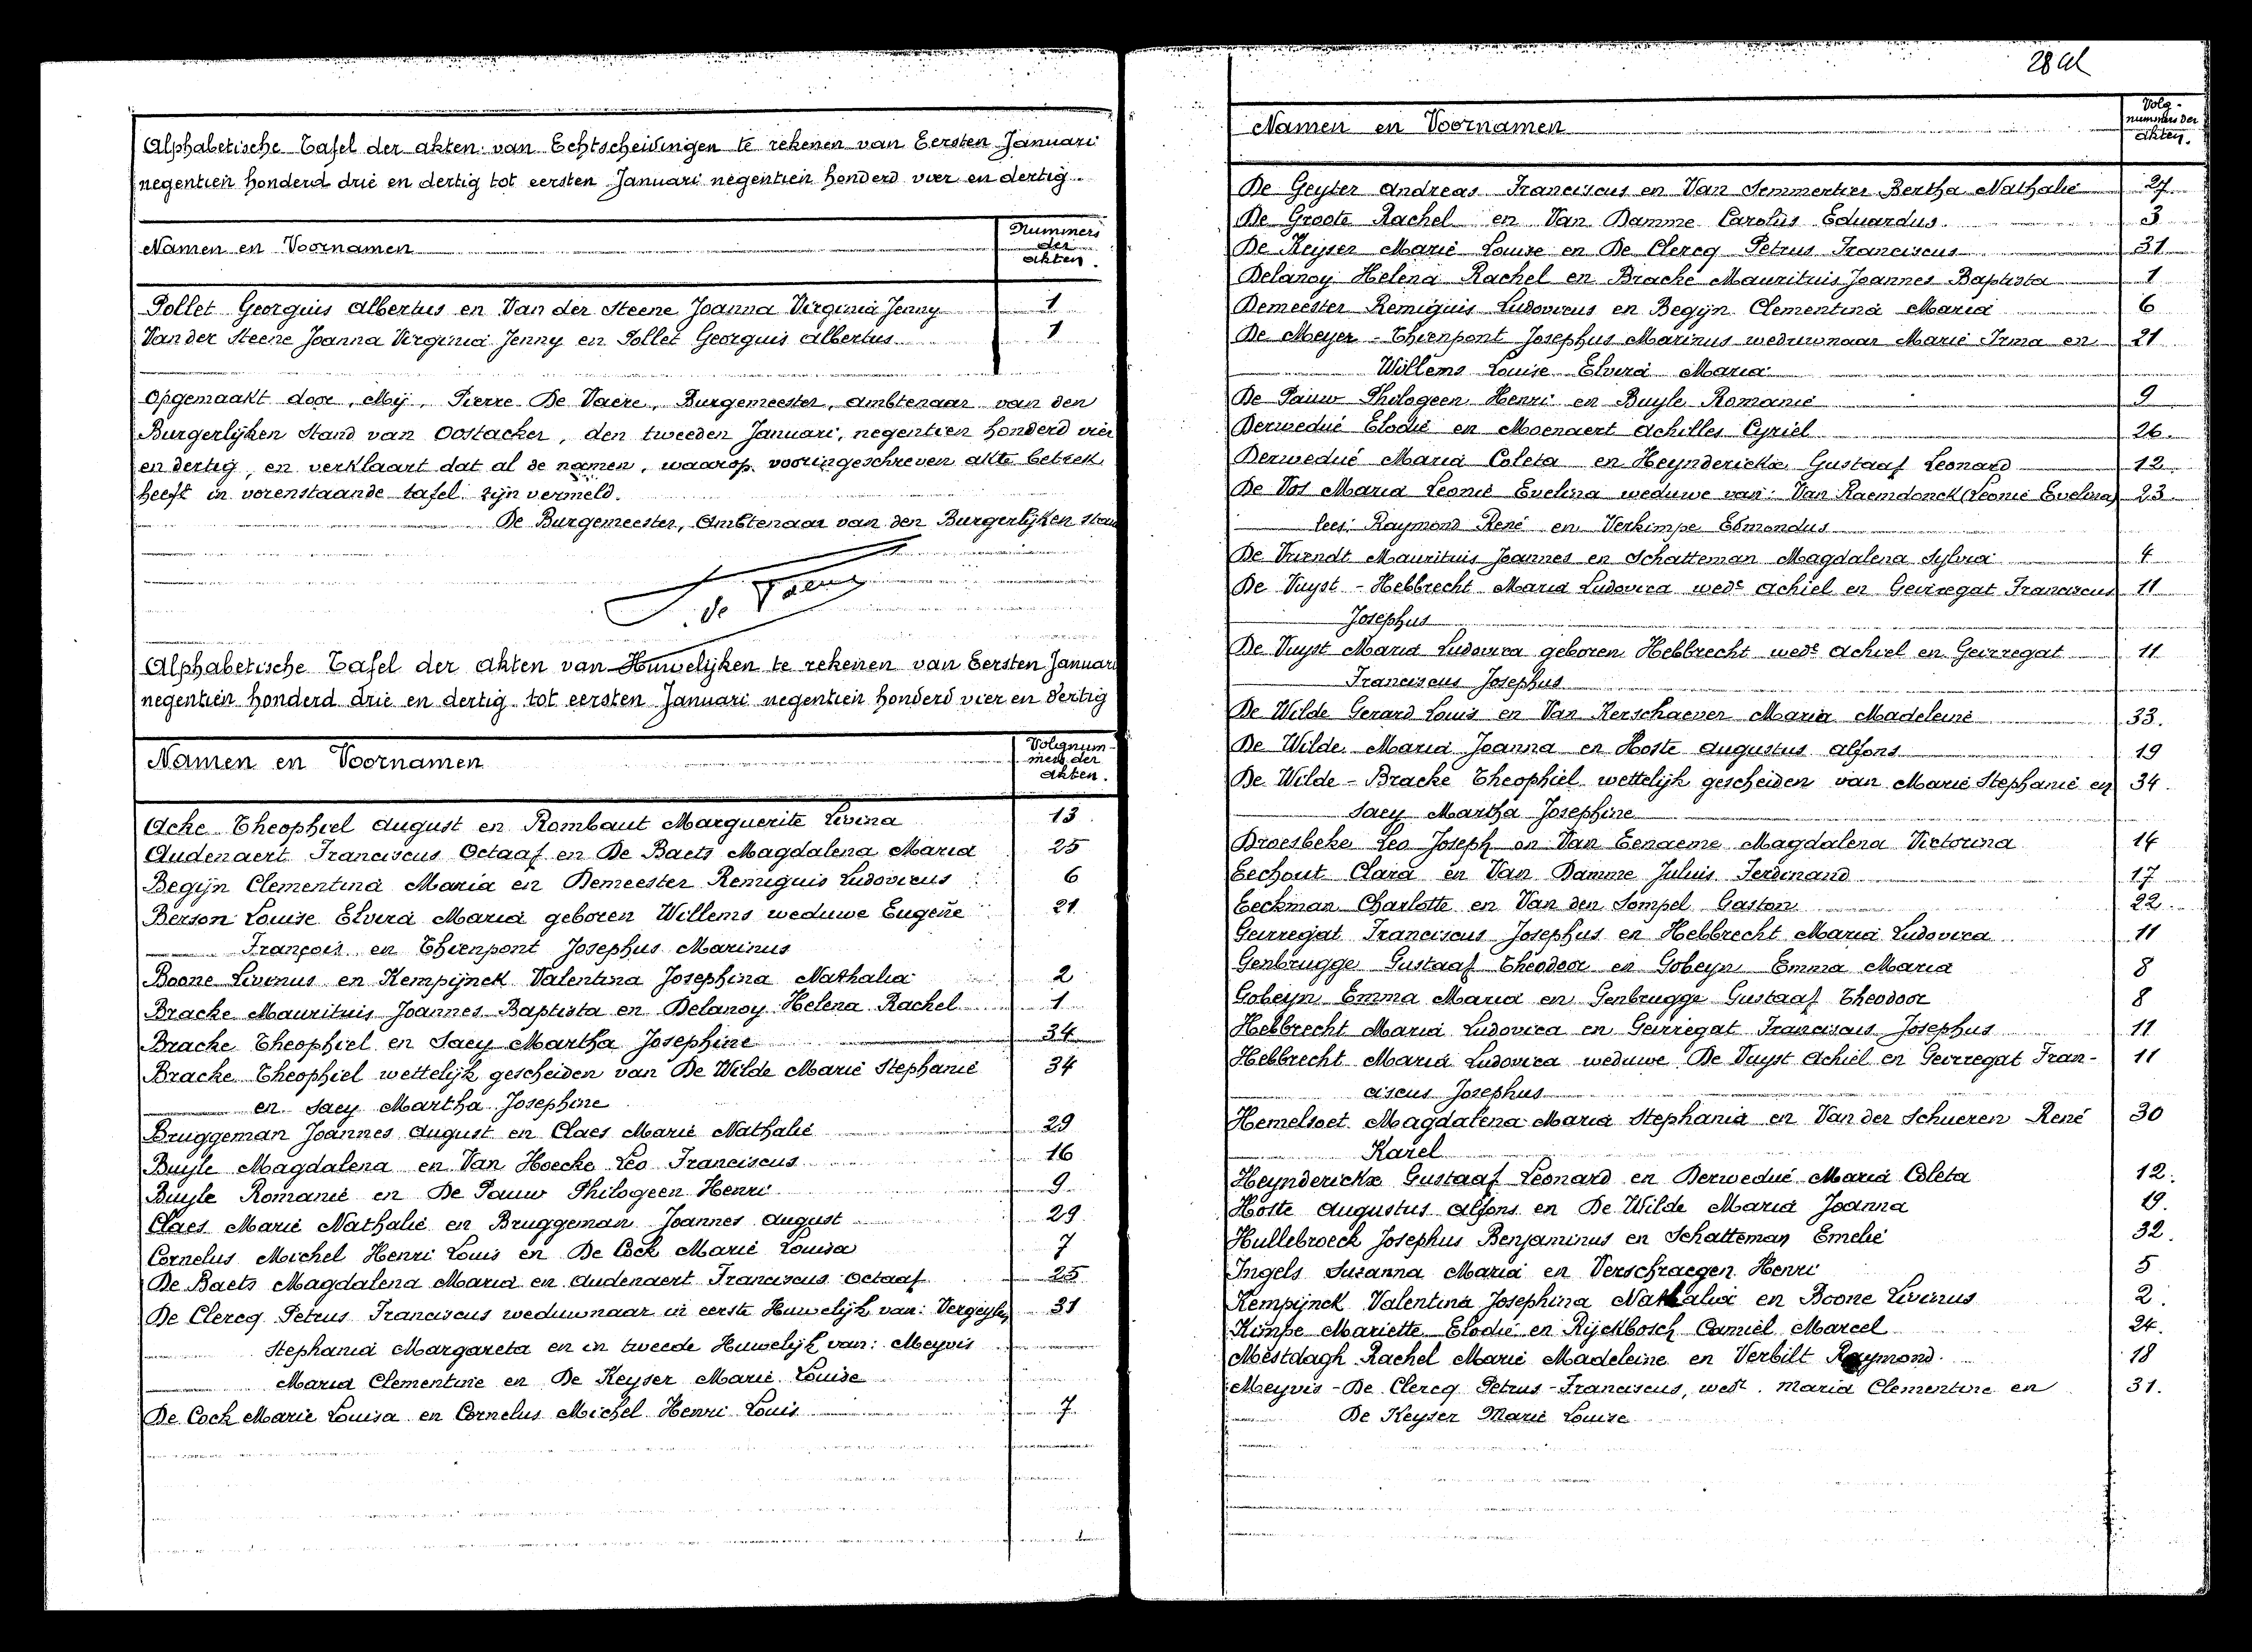 Alphabetische Tafel der akten van Echtscheidingen te rekenen van Eersten Januari
negentien honderd drie en dertig tot eersten Januari negentien honderd vier en dertig.
Namen en Voornamen
Nummers
der
akten.
Pollet Georgius Albertus en Van der Steene Joanna Virginia Jenny 1
Van der Steene Joanna Virginia Jenny en Pollet Georgius Albertus 1
Opgemaakt door, Mij, Pierre De Vaere, Burgemeester, ambtenaar van den
Burgerlijken Stand van Oostacker, den tweeden Januari, negentien honderd vier
en dertig, en verklaart dat al de namen, waarop vooringeschreven akte betrek
heeft in vorenstaande tafel zijn vermeld.
De Burgemeester, Ambtenaar van den Burgerlijken Stan
P. de Vaere
Alphabetische Tafel der akten van Huwelijken te rekenen van Eersten Januari
negentien honderd drie en dertig tot eersten Januari negentien honderd vier en dertig
Namen en Voornamen
Volgnum-
mers der
akten.
Acke Theophiel August en Rombaut Marguerite Livina 13
Audenaert Franciscus Octaaf en De Baets Magdalena Maria 25
Begijn Clementina Maria en Demeester Remiguis Ludovicus 6
Berson Louise Elvira Maria geboren Willems weduwe Eugene 21
François en Thienpont Josephus Marinus
Boone Livinus en Kempijnck Valentina Josephina Nathalia 2
Bracke Maurituis Joannes Baptista en Delanoy Helena Rachel 1
Bracke Theophiel en Saey Martha Josephine 34
Bracke Theophiel wettelijk gescheiden van De Wilde Marie Stephanie 34
en Saey Martha Josephine
Bruggeman Joannes August en Claes Marie Nathalie 29
Buyle Magdalena en Van Hoecke Leo Franciscus 16
Buyle Romanie en De Pauw Philogeen Henri 9
Claes Marie Nathalie en Bruggeman Joannes August 29
Cornelus Michel Henri Louis en De Cock Marie Louisa 7
De Baets Magdalena Maria en Audenaert Franciscus Octaaf 25
De Clercq Petrus Franciscus weduwnaar in eerste Huwelijk van: Vergeylen 31
Stephania Margareta en in tweede Huwelijk van: Meyvis
Maria Clementine en De Keyser Marie Louise
De Cock Marie Louisa en Cornelus Michel Henri Louis 7
28 al
Namen en Voornamen
Volg-
nummers der
akten.
De Geyter Andreas Franciscus en Van Semmertier Bertha Nathalie 27
De Groote Rachel en Van Damme Carolus Eduardus 3
De Keyser Marie Louise en De Clercq Petrus Franciscus 31
Delanoy Helena Rachel en Bracke Maurituis Joannes Baptista 1
Demeester Remiguis Ludovicus en Begijn Clementina Maria 6
De Meyer - Thienpont Josephus Marinus weduwnaar Marie Irma en 21
Willems Louise Elvira Maria
De Pauw Philogeen Henri en Buyle Romanie 9
Derwedué Elodie en Moenaert Achilles Cyriel 26.
Derwedué Maria Coleta en Heynderickx Gustaaf Leonard 12
De Vos Maria Leonie Evelina weduwe van: Van Raemdonck (Leonie Evelina) 23
lees: Raymond René en Verkimpe Edmondus
De Vriendt Maurituis Joannes en Schatteman Magdalena Sylvia 4
De Vuyst - Hebbrecht Maria Ludovica wede Achiel en Geirregat Franciscus 11
Josephus
De Vuyst Maria Ludovica geboren Hebbrecht wede Achiel en Geirregat 11
Franciscus Josephus
De Wilde Gerard Louis en Van Kerschaever Maria Madeleine 33.
De Wilde Maria Joanna en Hoste Augustus Alfons 19
De Wilde - Bracke Theophiel wettelijk gescheiden van Marie Stephanie en 34.
Saey Martha Josephine
Droesbeke Leo Joseph en Van Eenaeme Magdalena Victorina 14
Eechout Clara en Van Damme Juliuis Ferdinand 17
Eeckman Charlotte en Van den Sompel Gaston 22.
Geirregat Franciscus Josephus en Hebbrecht Maria Ludovica 11
Genbrugge Gustaaf Theodoor en Gobeyn Emma Maria 8
Gobeyn Emma Maria en Genbrugge Gustaaf Theodoor 8
Hebbrecht Maria Ludovica en Geirregat Franciscus Josephus 11
Hebbrecht Maria Ludovica weduwe De Vuyst Achiel en Geirregat Fran- 11
ciscus Josephus
Hemelsoet Magdalena Maria Stephania en Van der Schueren René 30
Karel
Heynderickx Gustaaf Leonard en Derwedué Maria Coleta 12.
Hoste Augustus Alfons en De Wilde Maria Joanna 19.
Hullebroeck Josephus Benjaminus en Schatteman Emelie 32.
Ingels Suzanna Maria en Verschraegen Henri 5
Kempijnck Valentina Josephina Nathalia en Boone Livinus 2.
Kimpe Mariette Elodie en Rijckbosch Camiel Marcel 24.
Mestdagh Rachel Marie Madeleine en Verbilt Raymond 18
Meyvis - De Clercq Petrus - Franciscus, wedr. Maria Clementine en 31.
De Keyser Marie Louise